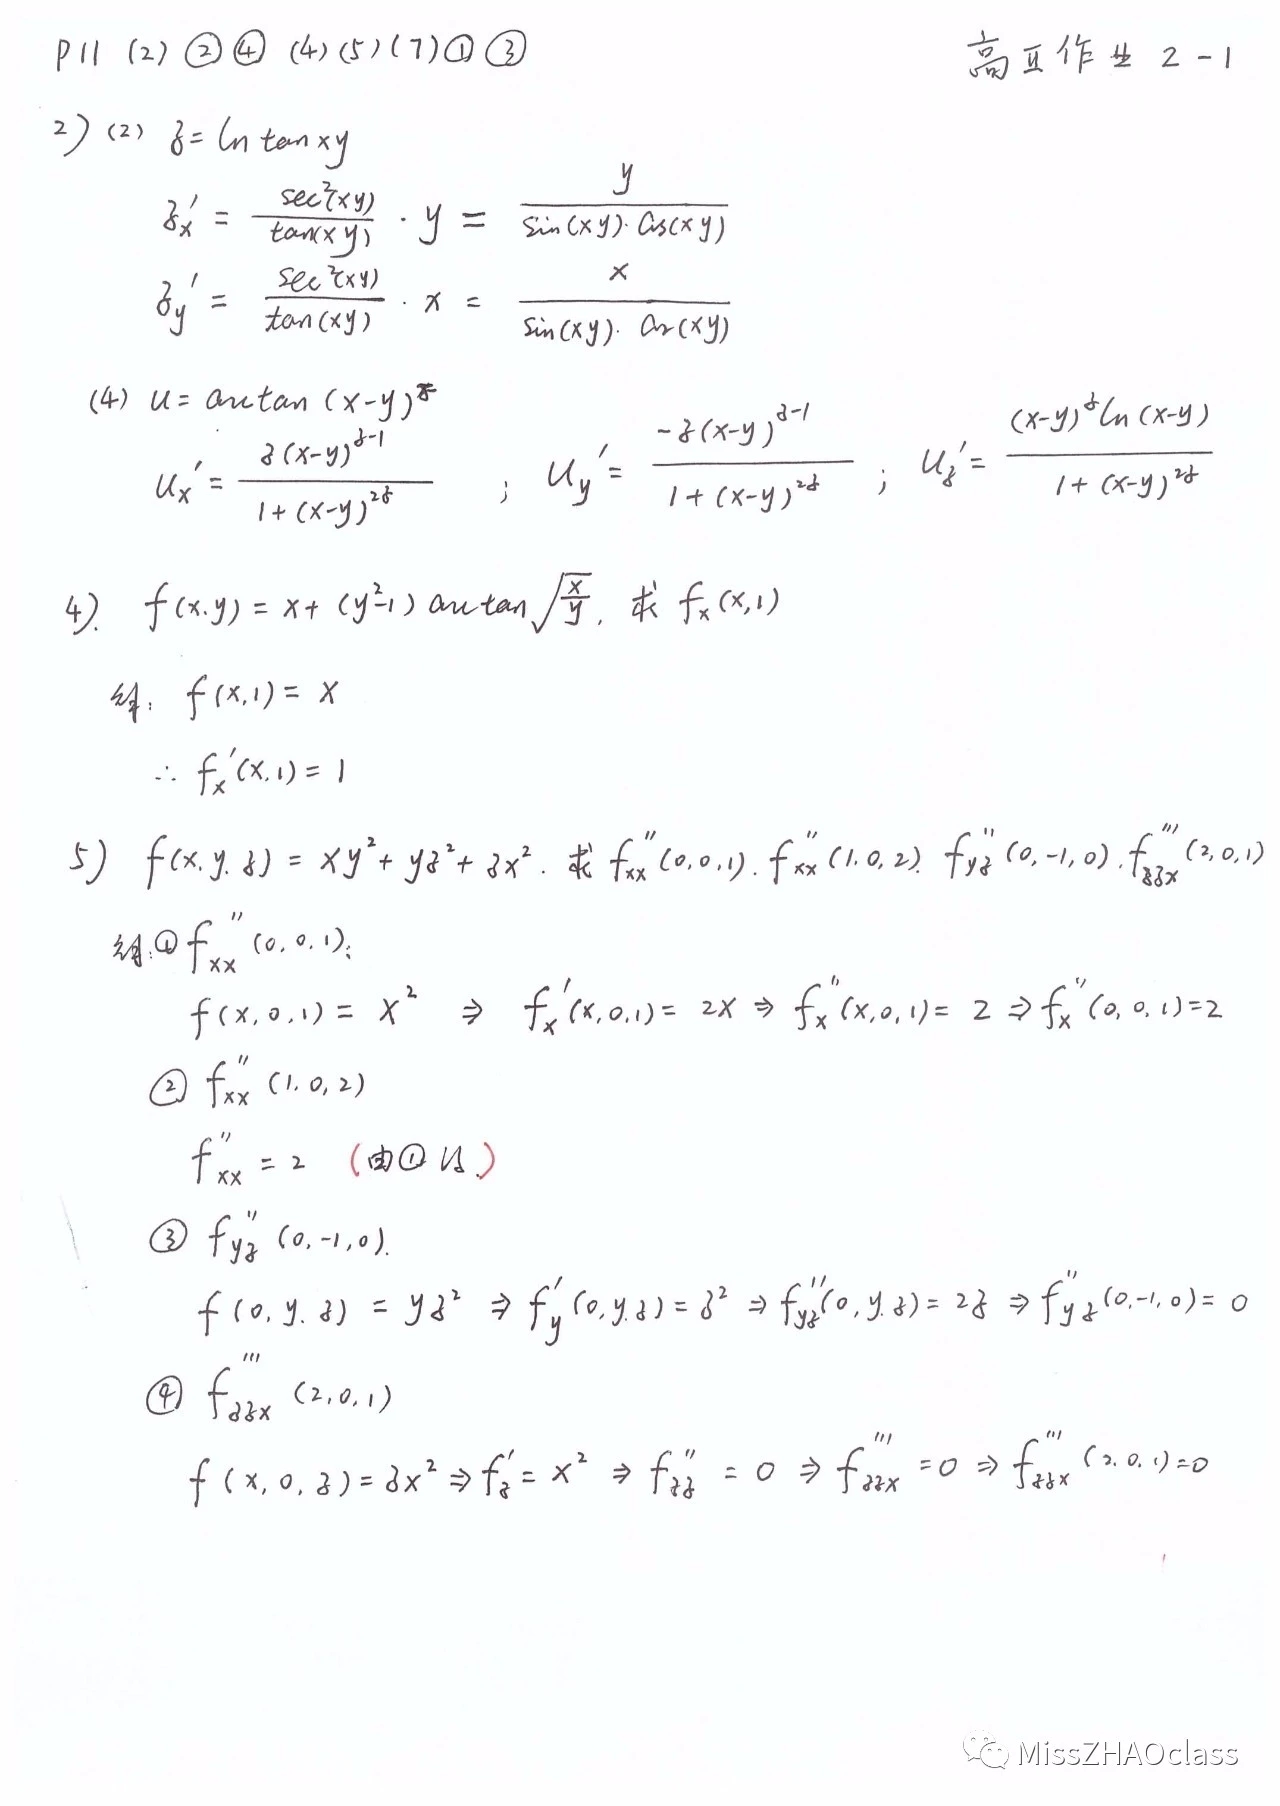 P11 (2) ② ④ (4) (5) (7) ① ③
高互作业 2-1
2) (2) z = ln tan xy
zx' = sec²(xy)/tan(xy) · y = y/(sin(xy)·cos(xy))
zy' = sec²(xy)/tan(xy) · x = x/(sin(xy)·cos(xy))
(4) u = arctan (x-y)^z
ux' = z(x-y)^(z-1)/(1+(x-y)^(2z)) ; uy' = -z(x-y)^(z-1)/(1+(x-y)^(2z)) ; uz' = (x-y)^z ln(x-y)/(1+(x-y)^(2z))
4). f(x.y) = x+ (y²-1) arctan √(x/y). 求 fx(x,1)
解. f(x,1) = x
∴ fx'(x,1) = 1
5) f(x.y.z) = xy²+ yz²+ zx². 求 fxx''(0,0,1). fxx''(1.0,2). fyz''(0,-1,0). fzzx'''(2,0,1)
解:① fxx''(0,0,1):
f(x,0,1) = x² ⇒ fx'(x,0,1) = 2x ⇒ fx''(x,0,1) = 2 ⇒ fx''(0,0,1) = 2
② fxx''(1.0,2)
fxx'' = 2 (由①得)
③ fyz''(0,-1,0).
f(0,y.z) = yz² ⇒ fy'(0,y.z) = z² ⇒ fyz''(0,y.z) = 2z ⇒ fyz''(0,-1,0) = 0
④ fzzx'''(2,0,1)
f(x,0,z) = zx² ⇒ fz' = x² ⇒ fzz'' = 0 ⇒ fzzx''' = 0 ⇒ fzzx'''(2.0,1) = 0
MissZHAOclass